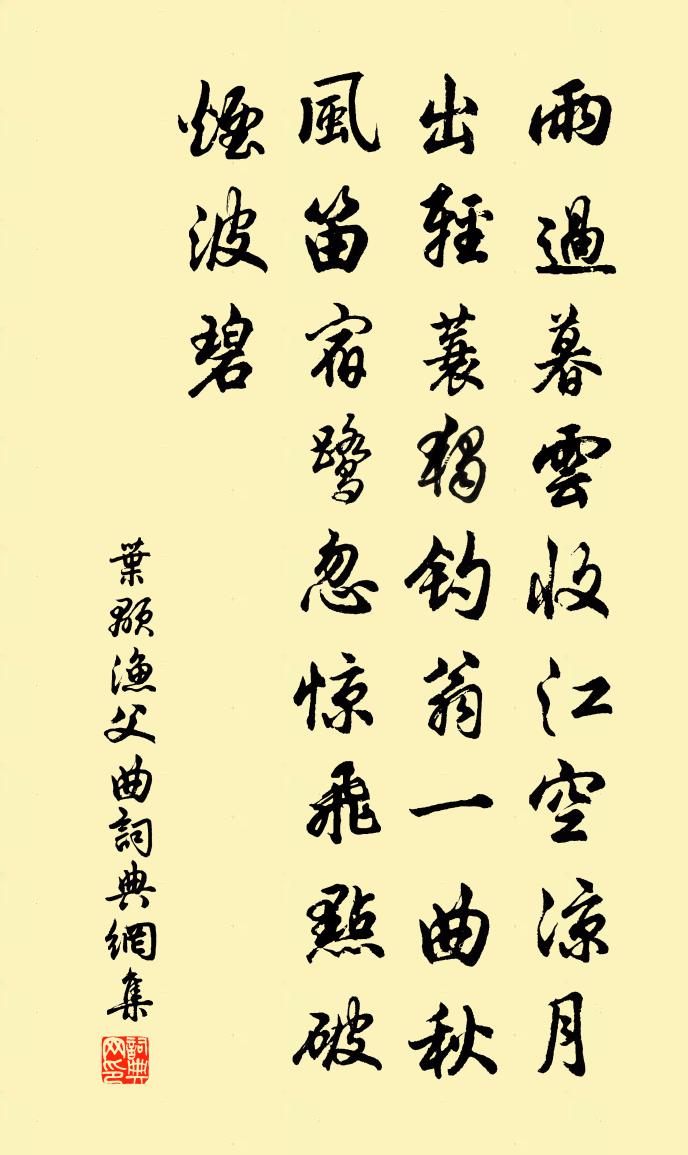 雨過暮雲收江空涼月
出輕蓑獨釣翁一曲秋
風笛宿鷺忽惊飛點破
煙波碧
葉顒漁父曲詞典網集
詞典网印